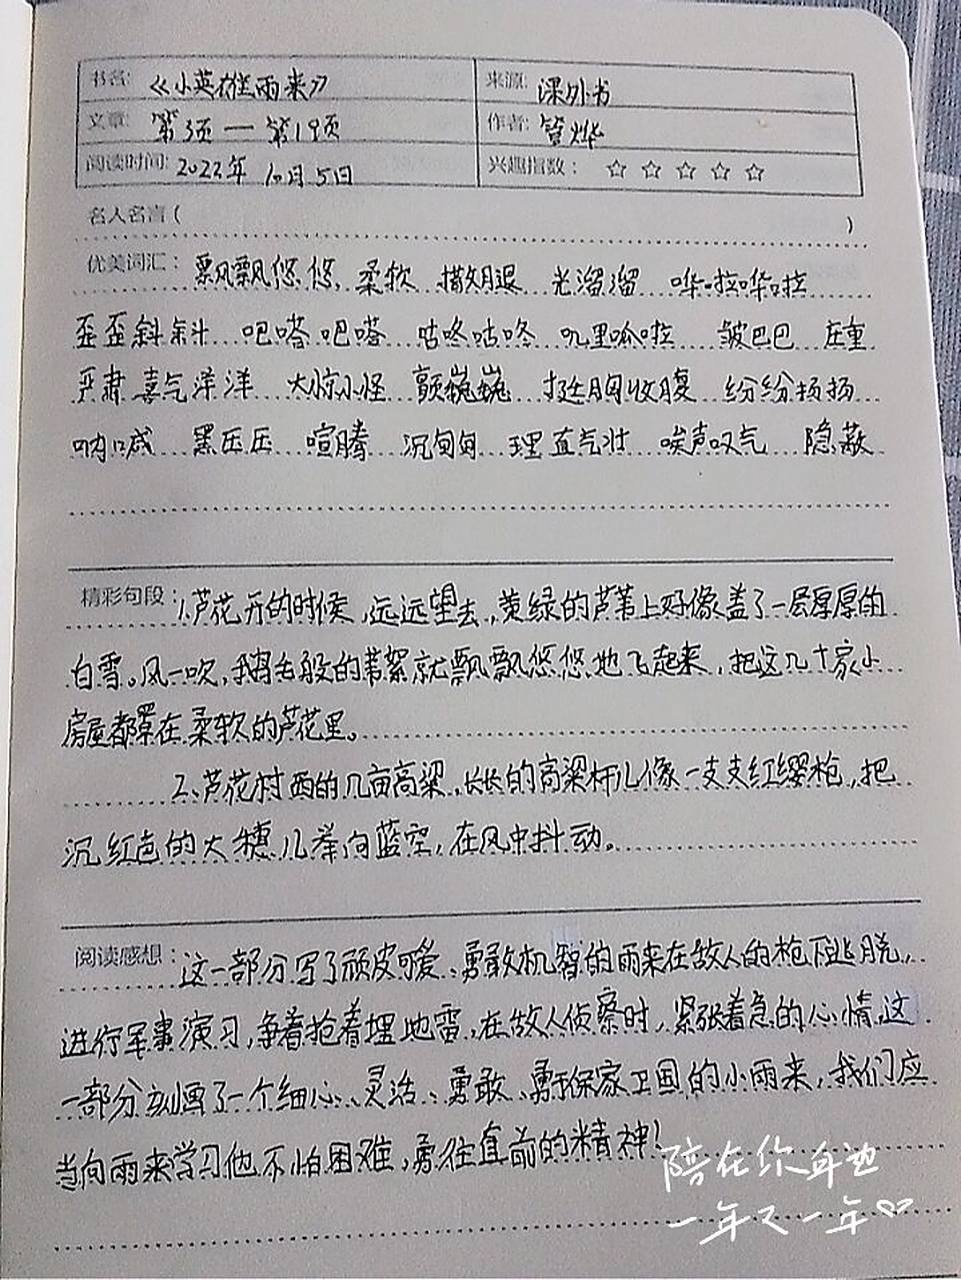 书名: 《小英雄雨来》 来源: 课外书
文章: 第3页一第19页 作者: 管烨
阅读时间: 2022年 10月5日 兴趣指数: ☆ ☆ ☆ ☆ ☆
名人名言( )
优美词汇: 飘飘悠悠 柔软 撒腿 光溜溜 哗啦哗啦
歪歪斜斜 吧嗒吧嗒 咕咚咕咚 叽里呱啦 皱巴巴 庄重
严肃 喜气洋洋 大惊小怪 颤巍巍 挺胸收腹 纷纷扬扬
呐喊 黑压压 喧腾 沉甸甸 理直气壮 唉声叹气 隐蔽
精彩句段: 1.芦花开的时候,远远望去,黄绿的芦苇上好像盖了一层厚厚的
白雪。风一吹,鹅毛般的苇絮就飘飘悠悠地飞起来,把这几十家小
房屋都罩在柔软的芦花里。
2.芦花村西的几亩高粱,长长的高粱杆儿像一支支红缨枪,把
沉红色的大穗儿举向蓝空,在风中抖动。
阅读感想: 这一部分写了顽皮可爱、勇敢机智的雨来在敌人的枪下逃脱,
进行军事演习,争着抢着埋地雷,在敌人侦察时,紧张着急的心情,这
一部分刻画了一个细心、灵活、勇敢、勇于保家卫国的小雨来,我们应
当向雨来学习他不怕困难,勇往直前的精神!
陪在你身边
一年又一年♡♡